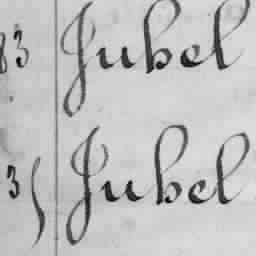 83 Jubel
3 Jubel